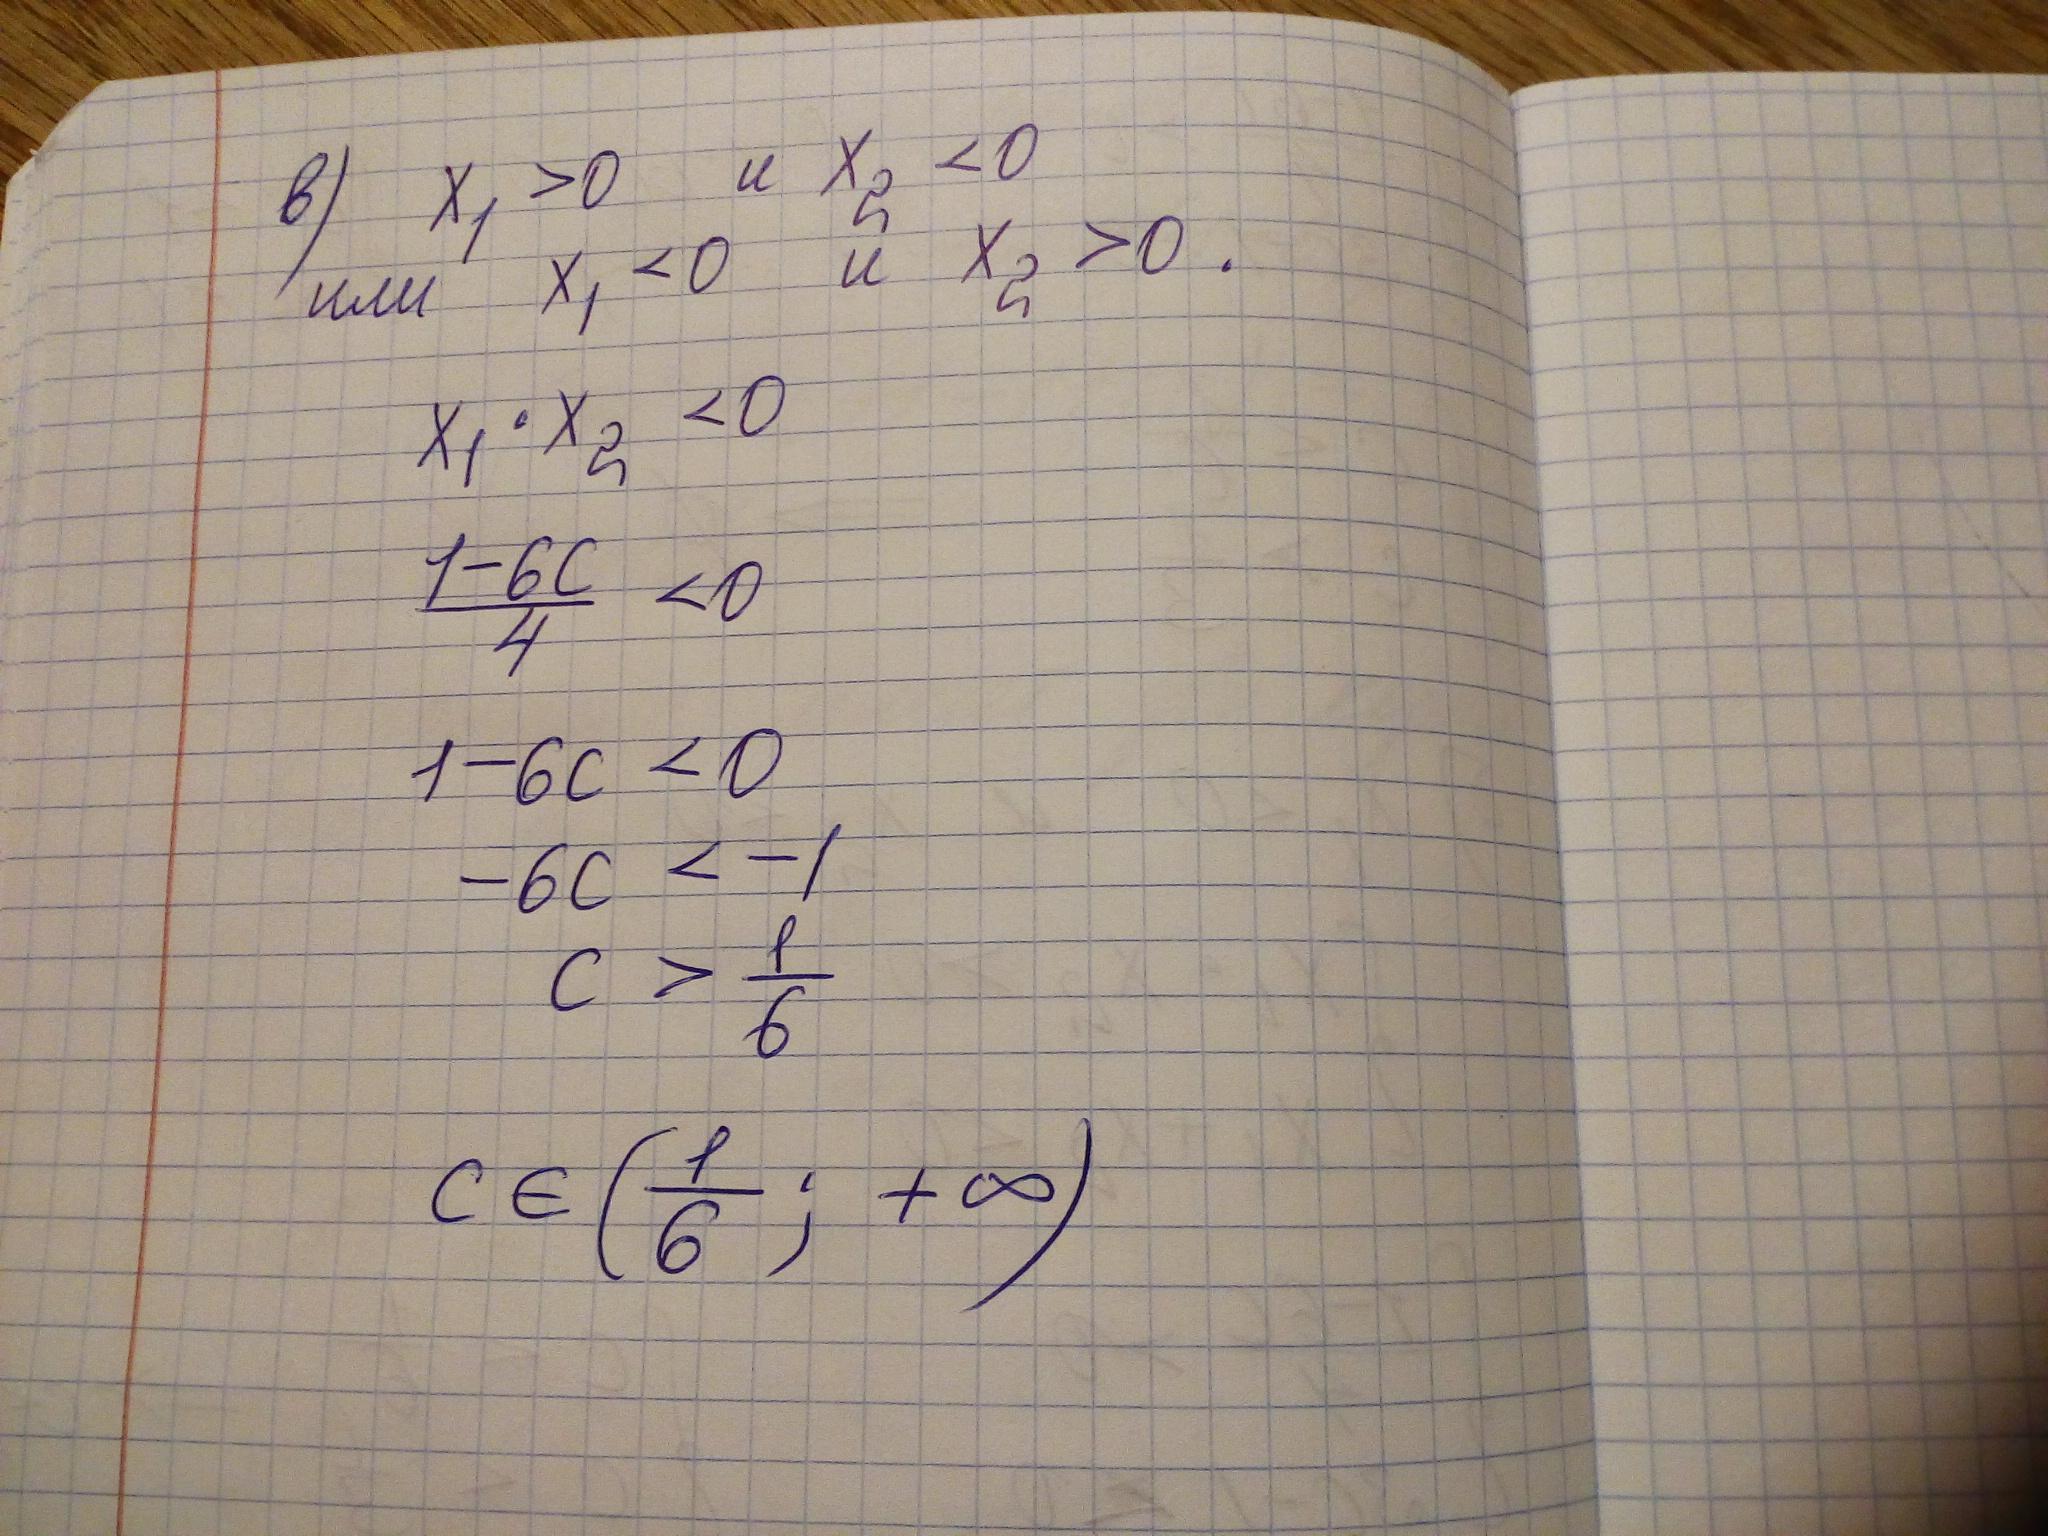 в) x₁ >0 и x₂ <0
или x₁ <0 и x₂ >0 .
x₁ · x₂ <0
(1-6C)/4 <0
1-6C <0
-6C < -1
C > 1/6
C ∈ (1/6 ; +∞)